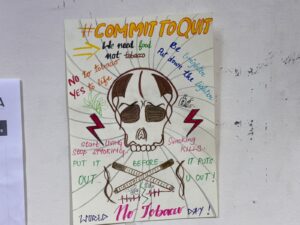 #COMMITTOQUIT
We need food
not tobacco
Be
Put down the lighter
No to tobacco
YES to life
start living
stop smoking
Smoking
KILLS
PUT IT BEFORE IT PUTS
OUT U OUT!
WORLD No Tobacco DAY!
A